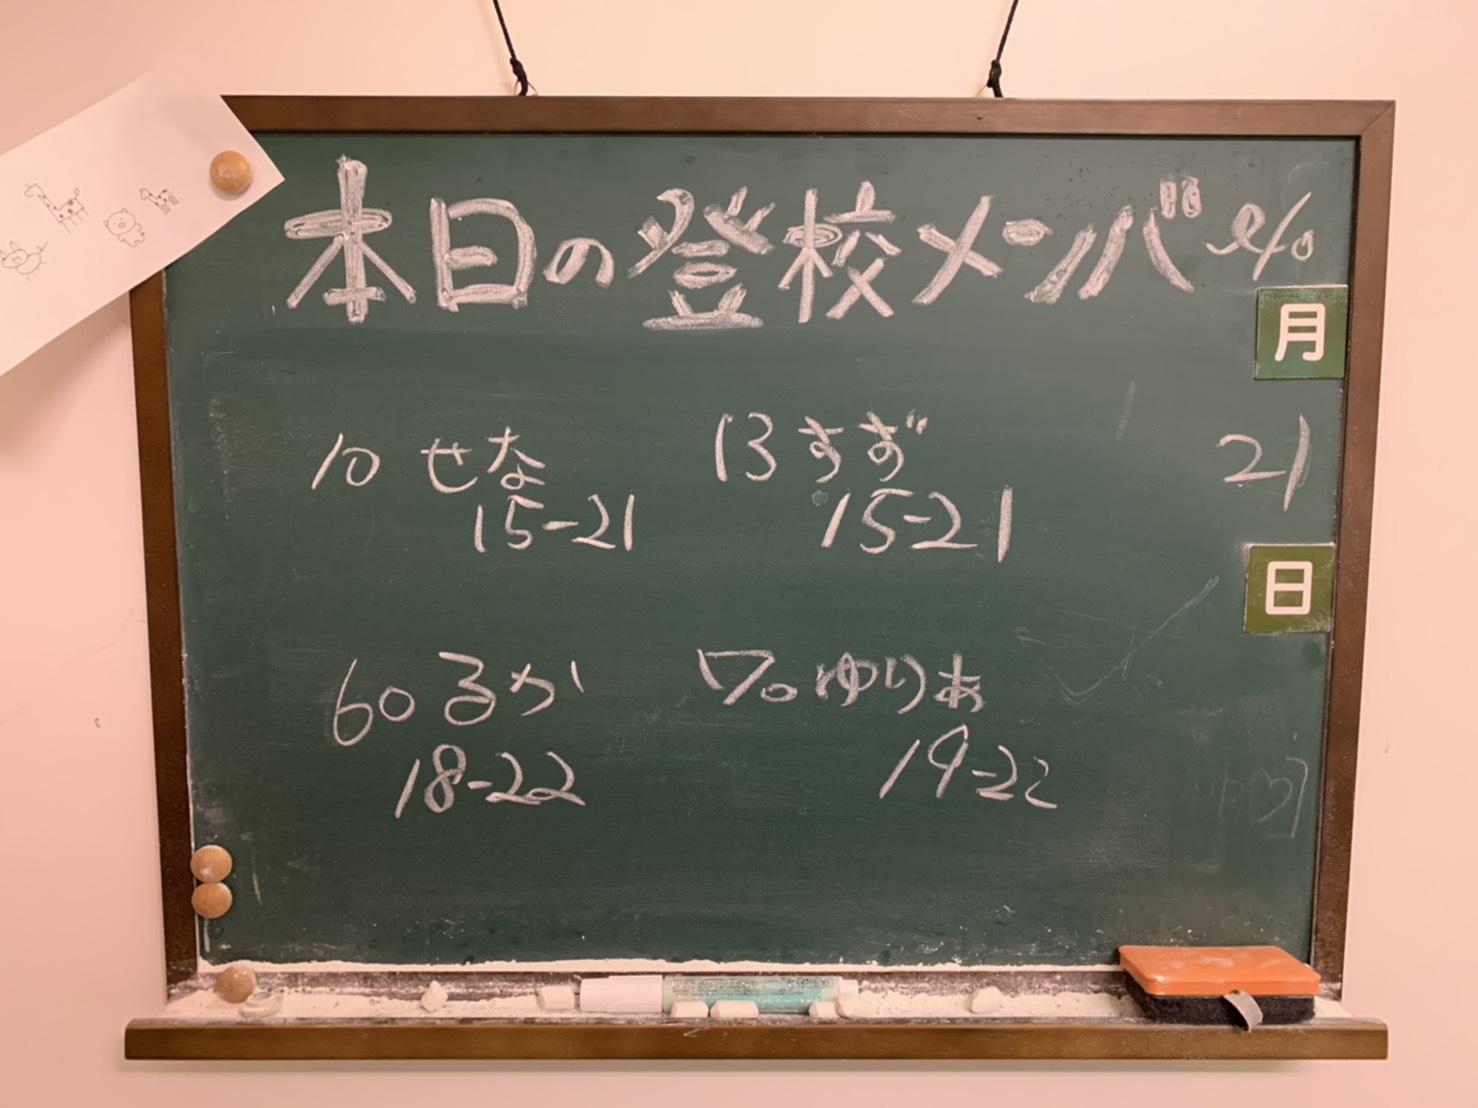 本日の登校メンバー
月
21
日
10 せな
15-21
13 すず
15-21
60 るか
18-22
70 ゆりあ
19-22